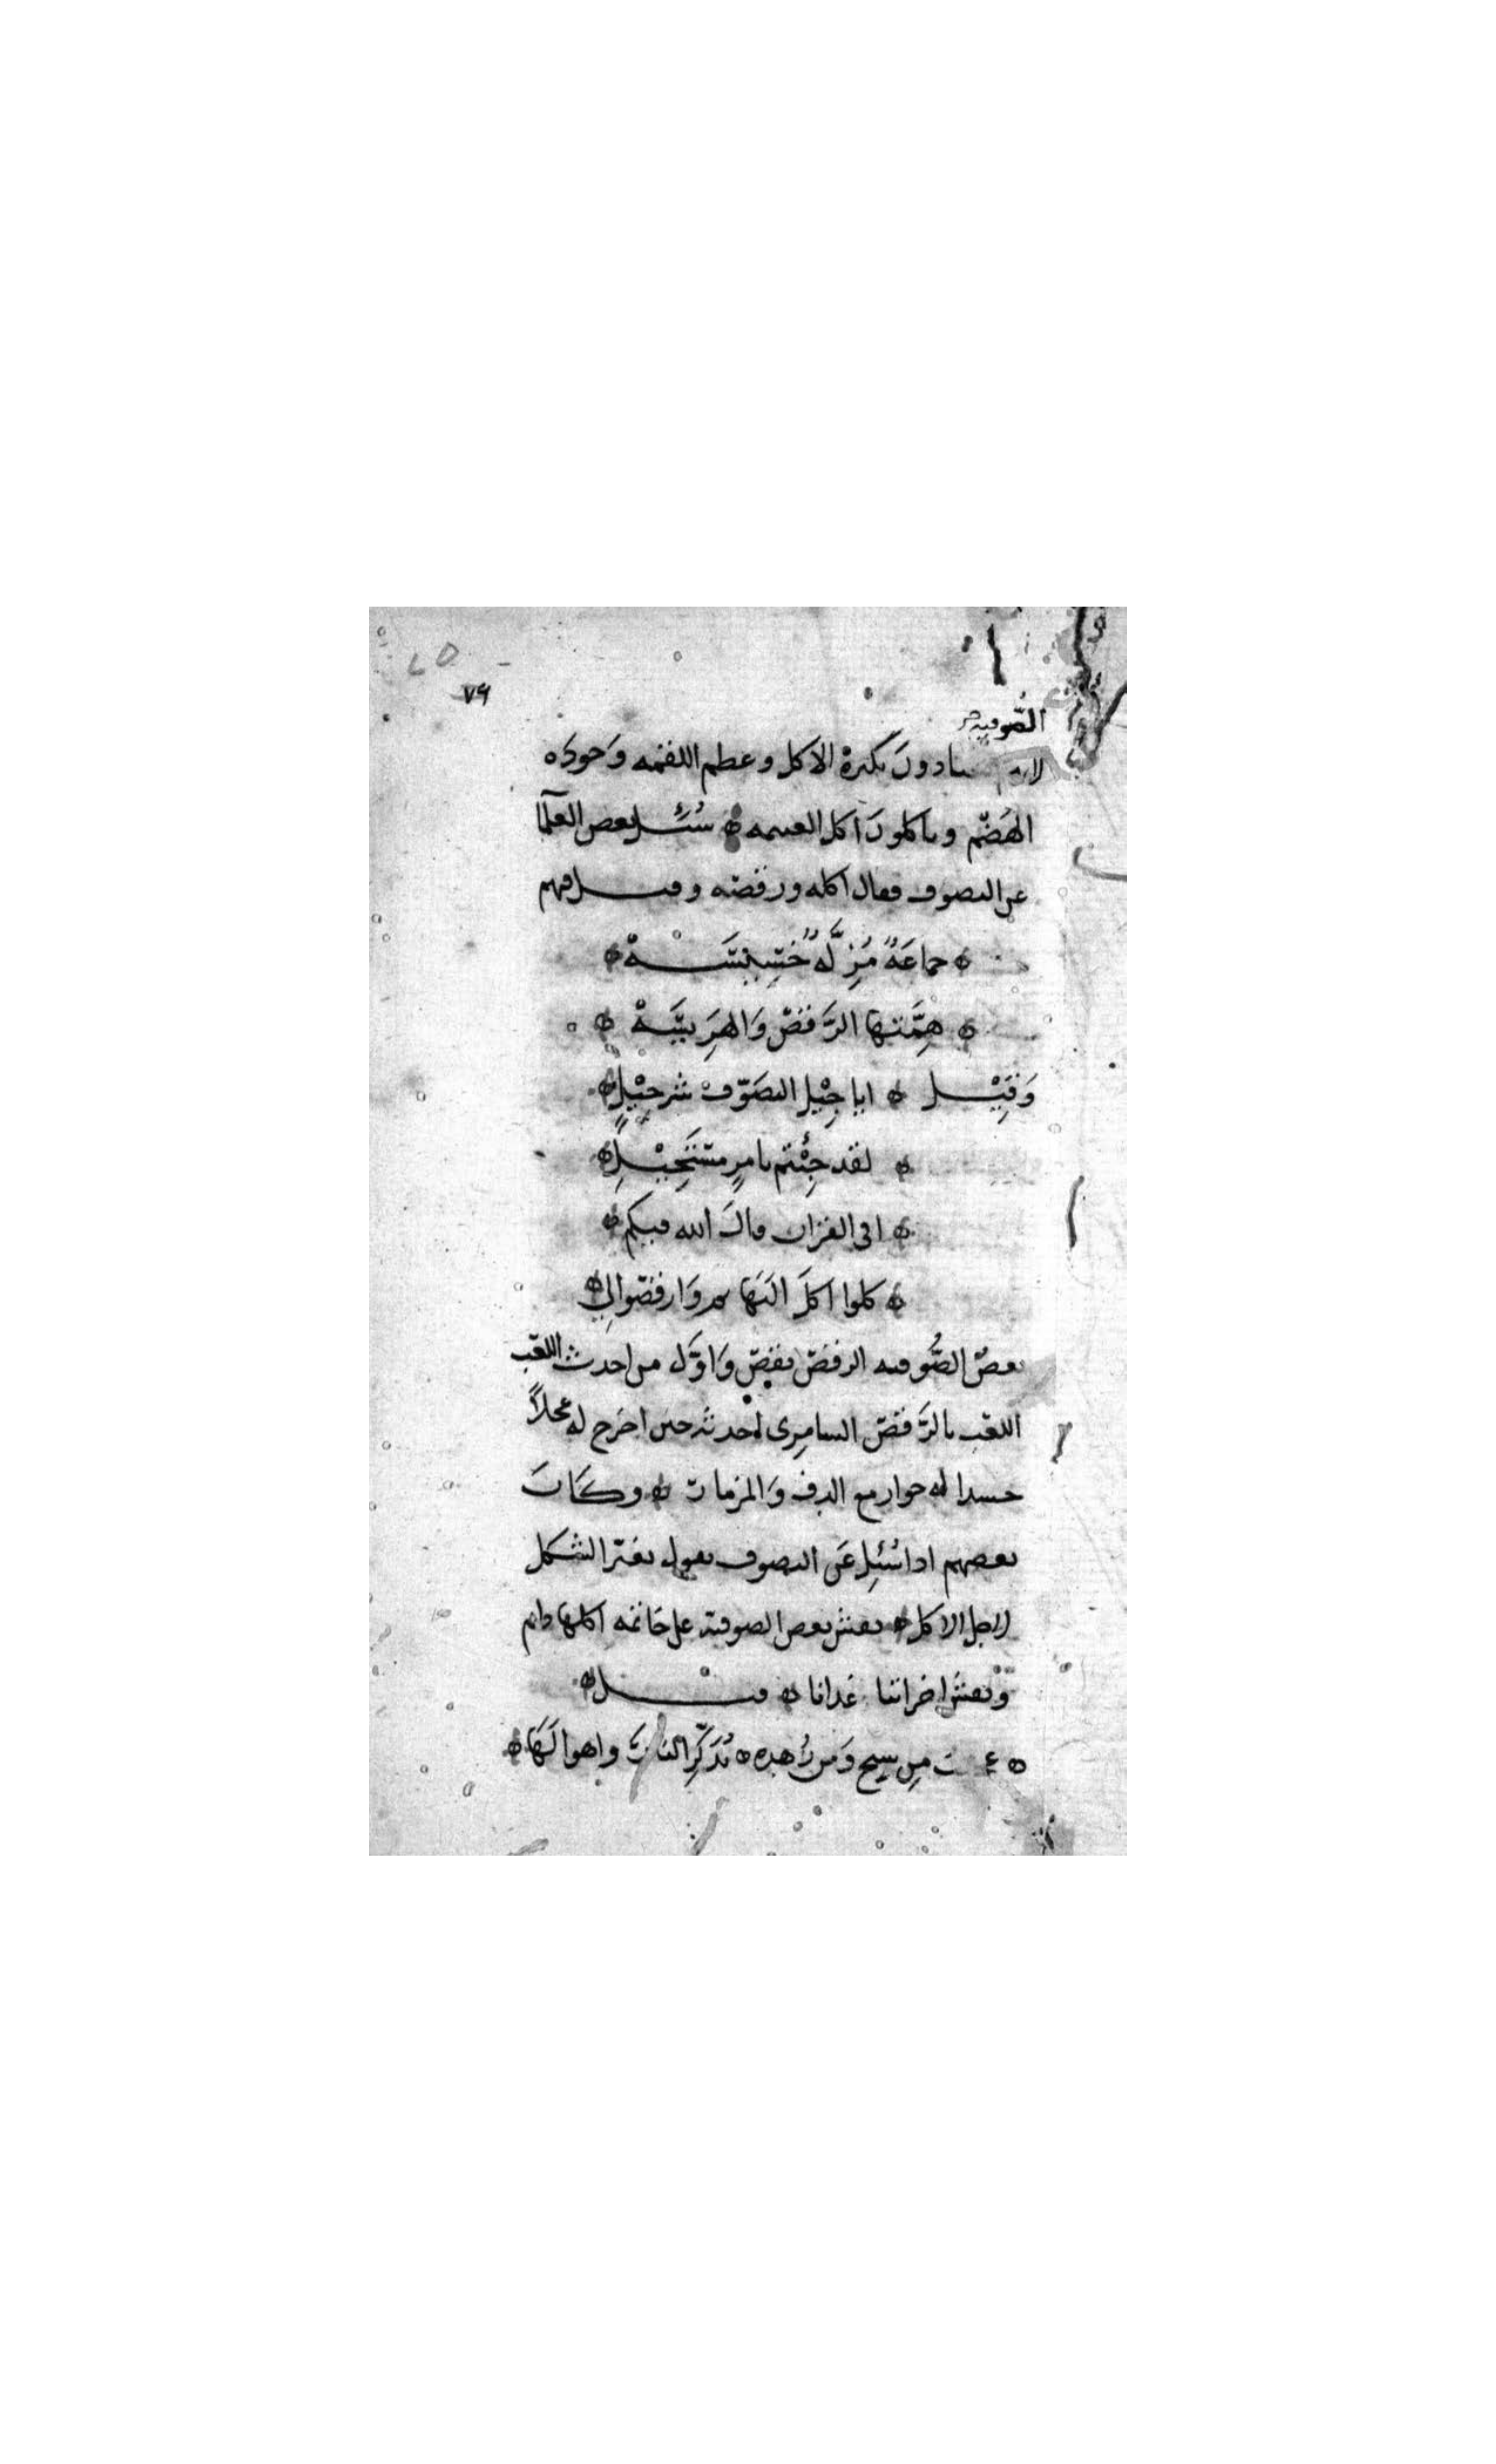 ٧٩
الصُّوفية
لانهم يتادون بكثرة الاكل وعظم اللقمه وَجودَه
الهَضْم وياكلون اكل الغنيمه سُئِل بعض العلما
عن التصوف فقال اكله ورقصه وقيل فيهم
جماعَةٌ
همَّتها الرَّقصُ وَالهَرِيسَهْ
وَقِيْل ايا جِيْل التصَوّف شر جِيْلٍ
لقد جِئْتم بامرٍ مستَحِيْلِ
افي القران قال الله فيكم
كلوا اكلَ البَهايم وَارقصوا لي
بعض الصُّوفيه الرقص نقص وَاوّل من احدث اللعب
اللعب بالرَّقص السامري احدثه حين اخرج له عجلاً
جسدا له خوار مع الدف وَالمزمار وَكان
بعضهم اذا سُئِل عَن التصوف يقول
لاجل الاكل نقش بعض الصوفية على خاتمه اكلها دايم
ونقش اخر اتنا غدانا قيل
من سيح وَمن زهده يُذكِّر الناس واهوالَها